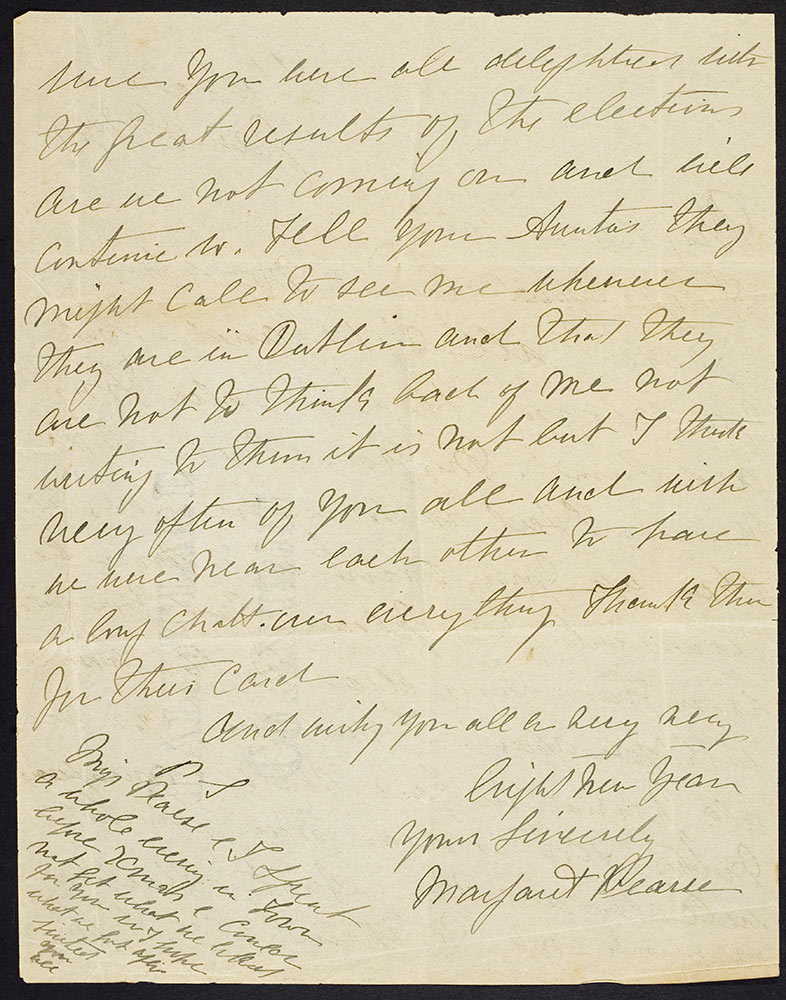 sure you were all delighted with
the great results of the elections
are we not coming on and will
continue to. Tell your Aunta's they
might call to see me whenever
they are in Dublin and that they
are not to think bad of me not
writing to them it is not but I think
very often of you all and wish
we were near each other to have
a long chatt. over everything Thank them
for their Card
And wishing you all a very very
bright New Year
Yours Sincerely
Margaret Pearse
P S
Miss Pearse & I spent
a whole evening in Town
before Xmas & could
not get what we liked
for you so I hope
what we got after
suited
you
all